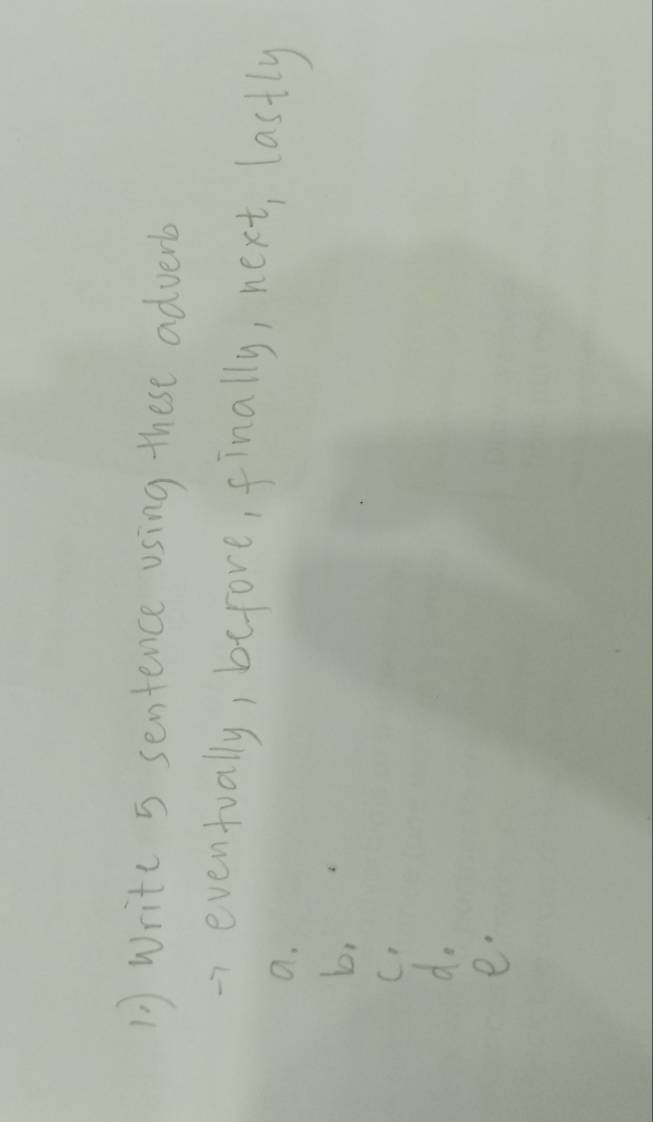 1.) Write 5 sentence using these adverb
→ eventually, before, finally, next, lastly
a.
b.
c.
d.
e.